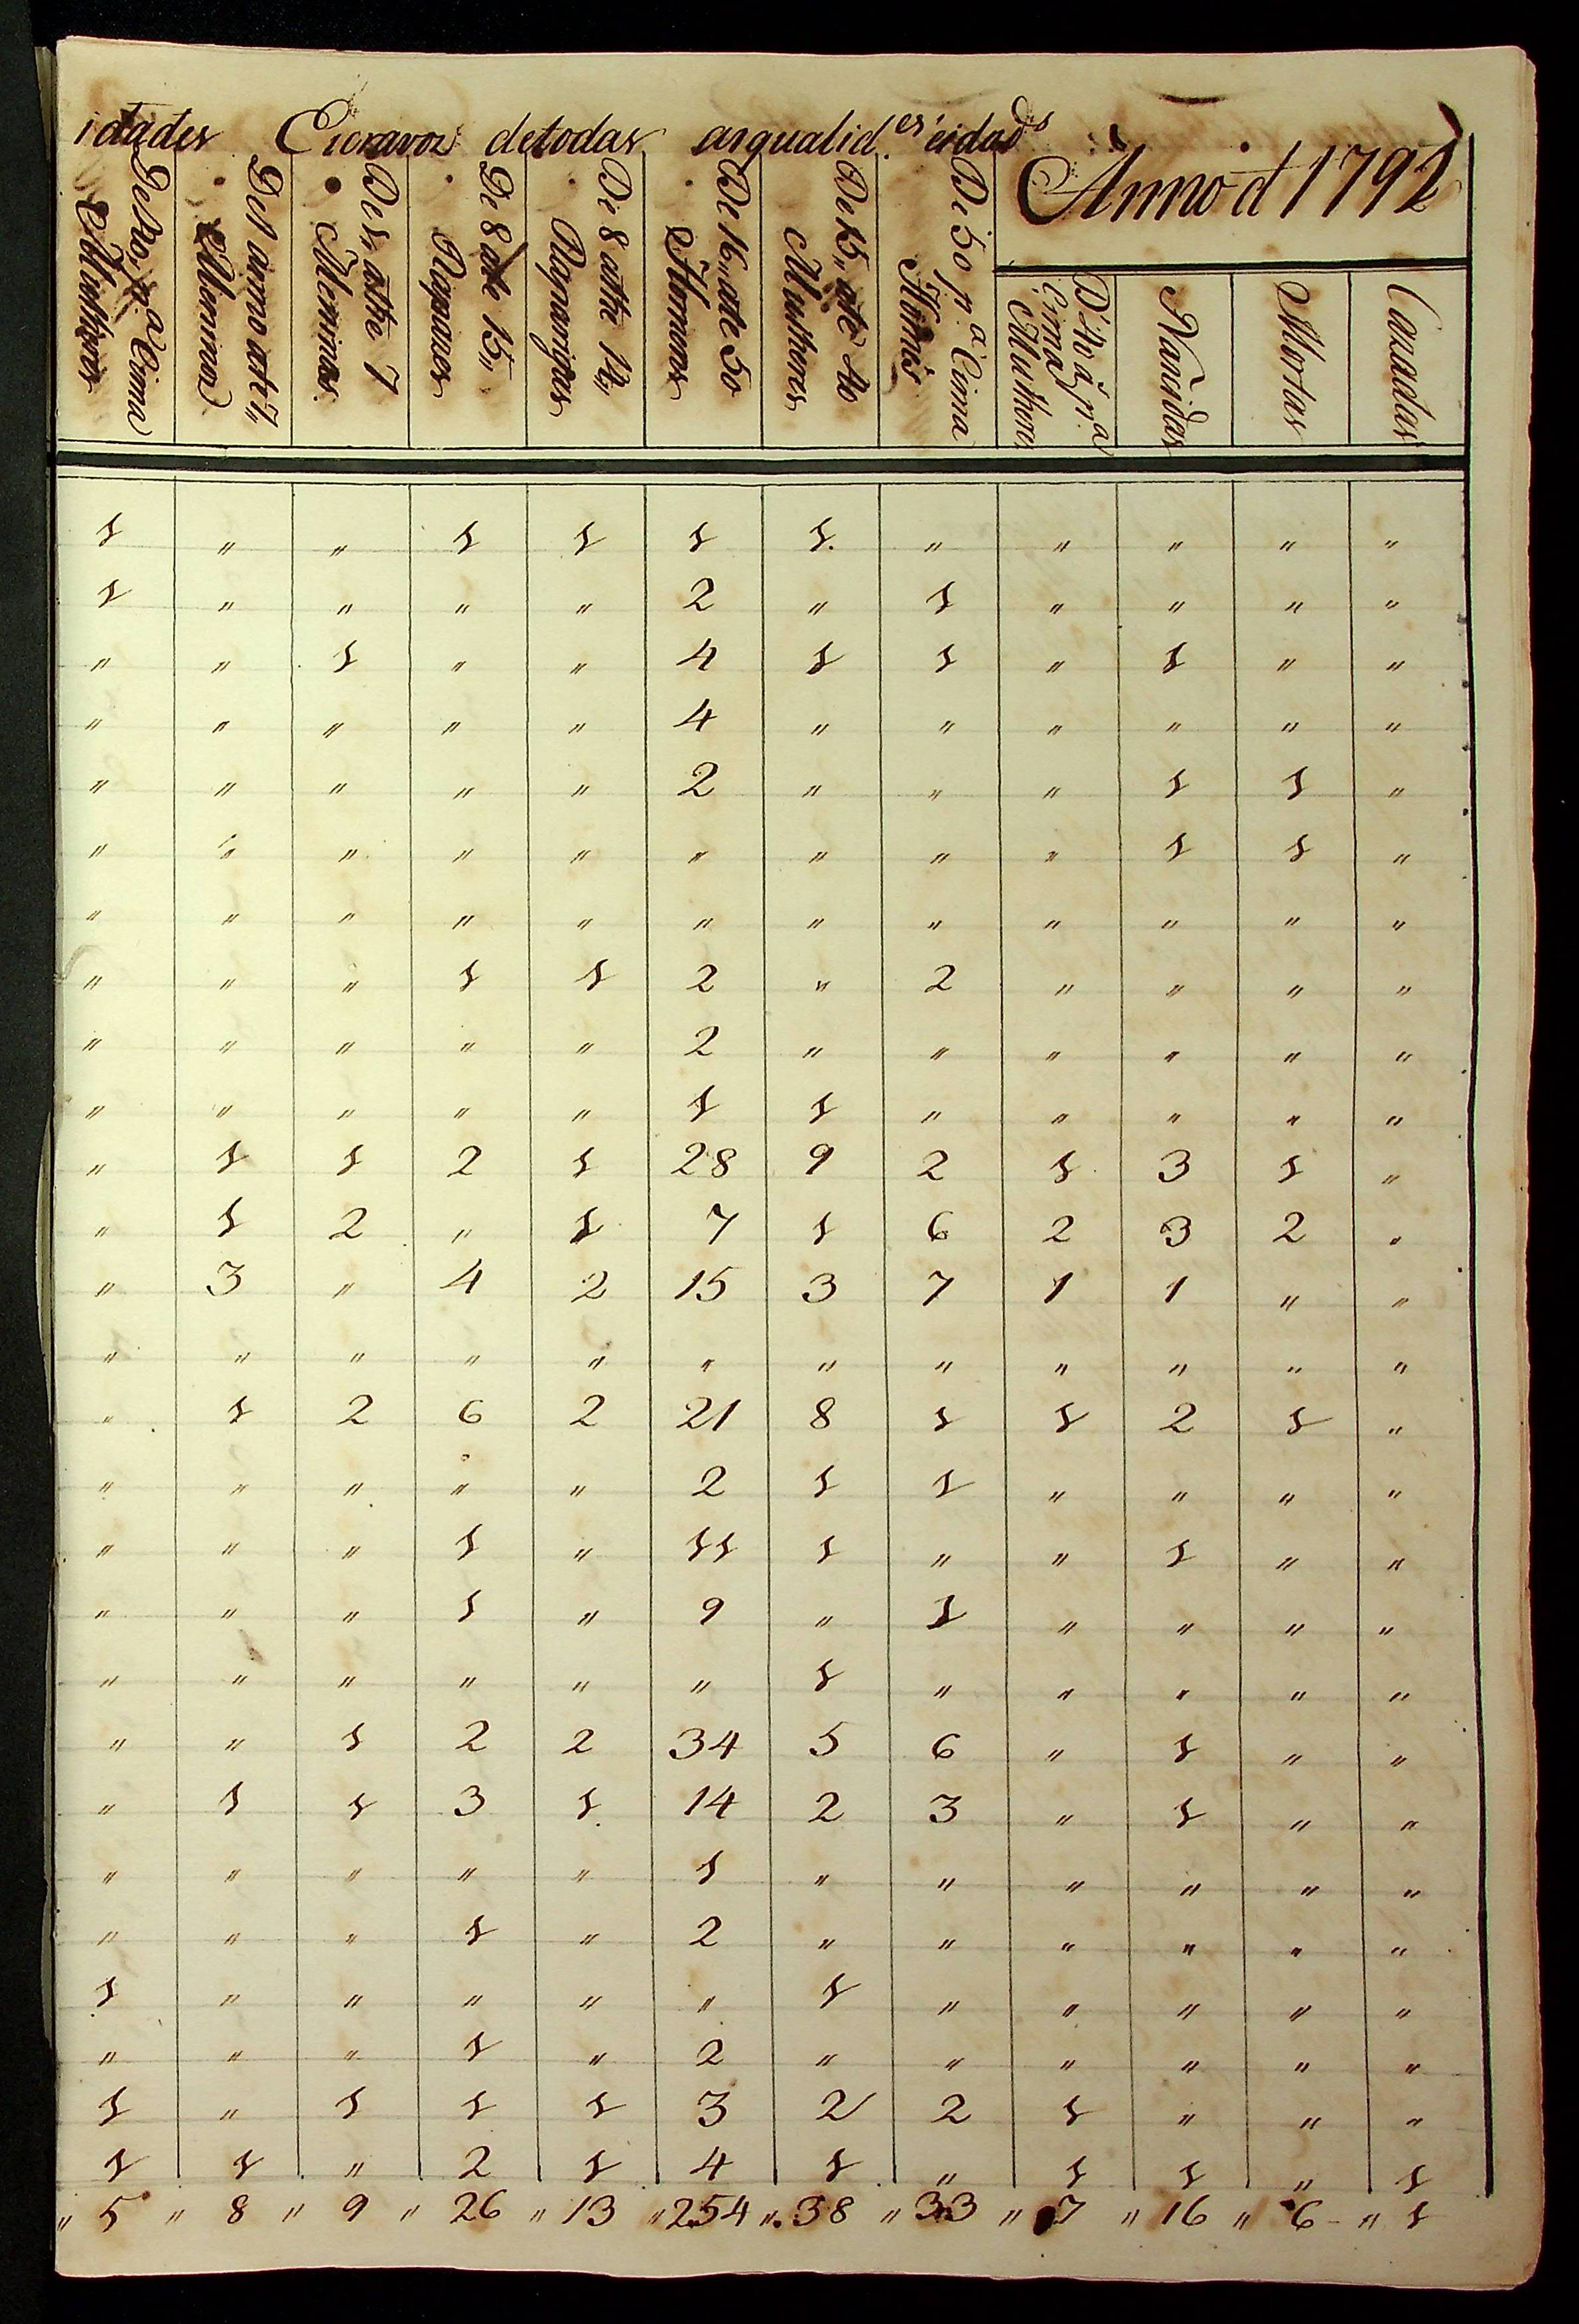 idades Escravos de todas as qualid.es e idad.s
Anno d 1792
De 40,, p.a Cima Mulheres | De 1 anno ate 7,, Meninos | De 1,, athe 7 Meninas | De 8 ate 15,, Rapazes | De 8 athe 14,, Raparigas | De 16,, ate 50 Homens | De 15,, ate 40 Mulheres | De 50 p.a Cima Homens | D 40 a p.a Cima Mulheres | Nascidos | Mortos | Cazados
1 | " | " | 1 | 1 | 1 | 1. | " | " | " | " | "
1 | " | " | " | " | 2 | " | 1 | " | " | " | "
" | " | 1 | " | " | 4 | 1 | 1 | " | 1 | " | "
" | " | " | " | " | 4 | " | " | " | " | " | "
" | " | " | " | " | 2 | " | " | " | 1 | 1 | "
" | " | " | " | " | " | " | " | " | 1 | 1 | "
" | " | " | " | " | " | " | " | " | " | " | "
" | " | " | 1 | 1 | 2 | " | 2 | " | " | " | "
" | " | " | " | " | 2 | " | " | " | " | " | "
" | " | " | " | " | 1 | 1 | " | " | " | " | "
" | 1 | 1 | 2 | 1 | 28 | 9 | 2 | 1 | 3 | 1 | "
" | 1 | 2 | " | 1 | 7 | 1 | 6 | 2 | 3 | 2 | "
" | 3 | " | 4 | 2 | 15 | 3 | 7 | 1 | 1 | " | "
" | " | " | " | " | " | " | " | " | " | " | "
" | 1 | 2 | 6 | 2 | 21 | 8 | 1 | 1 | 2 | 1 | "
" | " | " | " | " | 2 | 1 | 1 | " | " | " | "
" | " | " | 1 | " | 11 | 1 | " | " | 1 | " | "
" | " | " | 1 | " | 9 | " | 1 | " | " | " | "
" | " | " | " | " | " | 1 | " | " | " | " | "
" | " | 1 | 2 | 2 | 34 | 5 | 6 | " | 1 | " | "
" | 1 | 1 | 3 | 1 | 14 | 2 | 3 | " | 1 | " | "
" | " | " | " | " | 1 | " | " | " | " | " | "
" | " | " | 1 | " | 2 | " | " | " | " | " | "
1 | " | " | " | " | " | 1 | " | " | " | " | "
" | " | " | 1 | " | 2 | " | " | " | " | " | "
1 | " | 1 | 1 | 1 | 3 | 2 | 2 | 1 | " | " | "
1 | 1 | " | 2 | 1 | 4 | 1 | " | 1 | 1 | " | 1
" 5 " 8 " 9 " 26 " 13 " 254 " 38 " 33 " 7 " 16 " 6 " 1